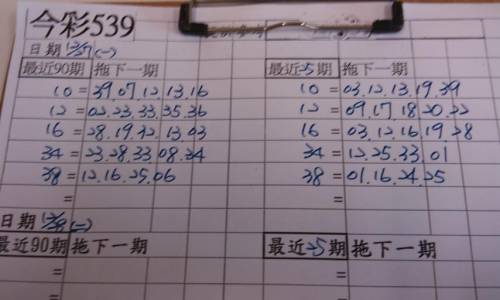 今彩539
日期12/27(一)
最近90期 拖下一期 最近25期 拖下一期
10 = 39.07.12.13.16 10 = 03.12.13.19.39
12 = 02.23.33.35.36 12 = 09.17.18.20.22
16 = 28.19.32.13.03 16 = 03.12.16.19.28
34 = 23.28.33.08.34 34 = 12.25.33.01
38 = 12.16.25.06 38 = 01.16.24.25
= =
日期12/28(二)
最近90期 拖下一期 最近25期 拖下一期
= =
= =